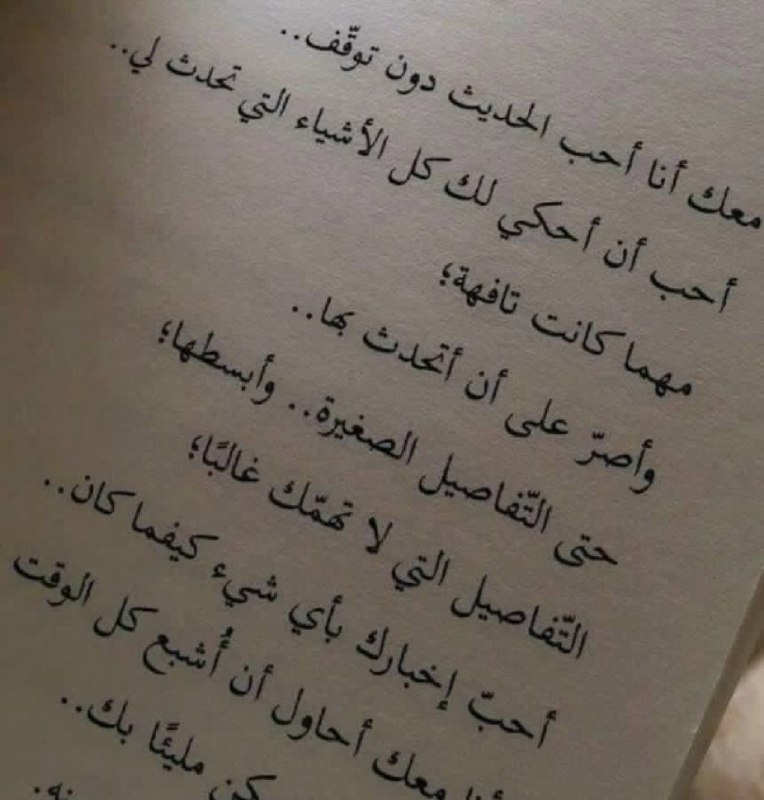 معك أنا أحب الحديث دون توقّف..
أحب أن أحكي لك كل الأشياء التي تحدث لي..
مهما كانت تافهة؛
وأصرّ على أن أتحدث بها..
حتى التّفاصيل الصغيرة.. وأبسطها؛
التّفاصيل التي لا تهمّك غالبًا؛
أحبّ إخبارك بأي شيء كيفما كان..
أنا معك أحاول أن أُشبع كل الوقت
مليئًا بك..